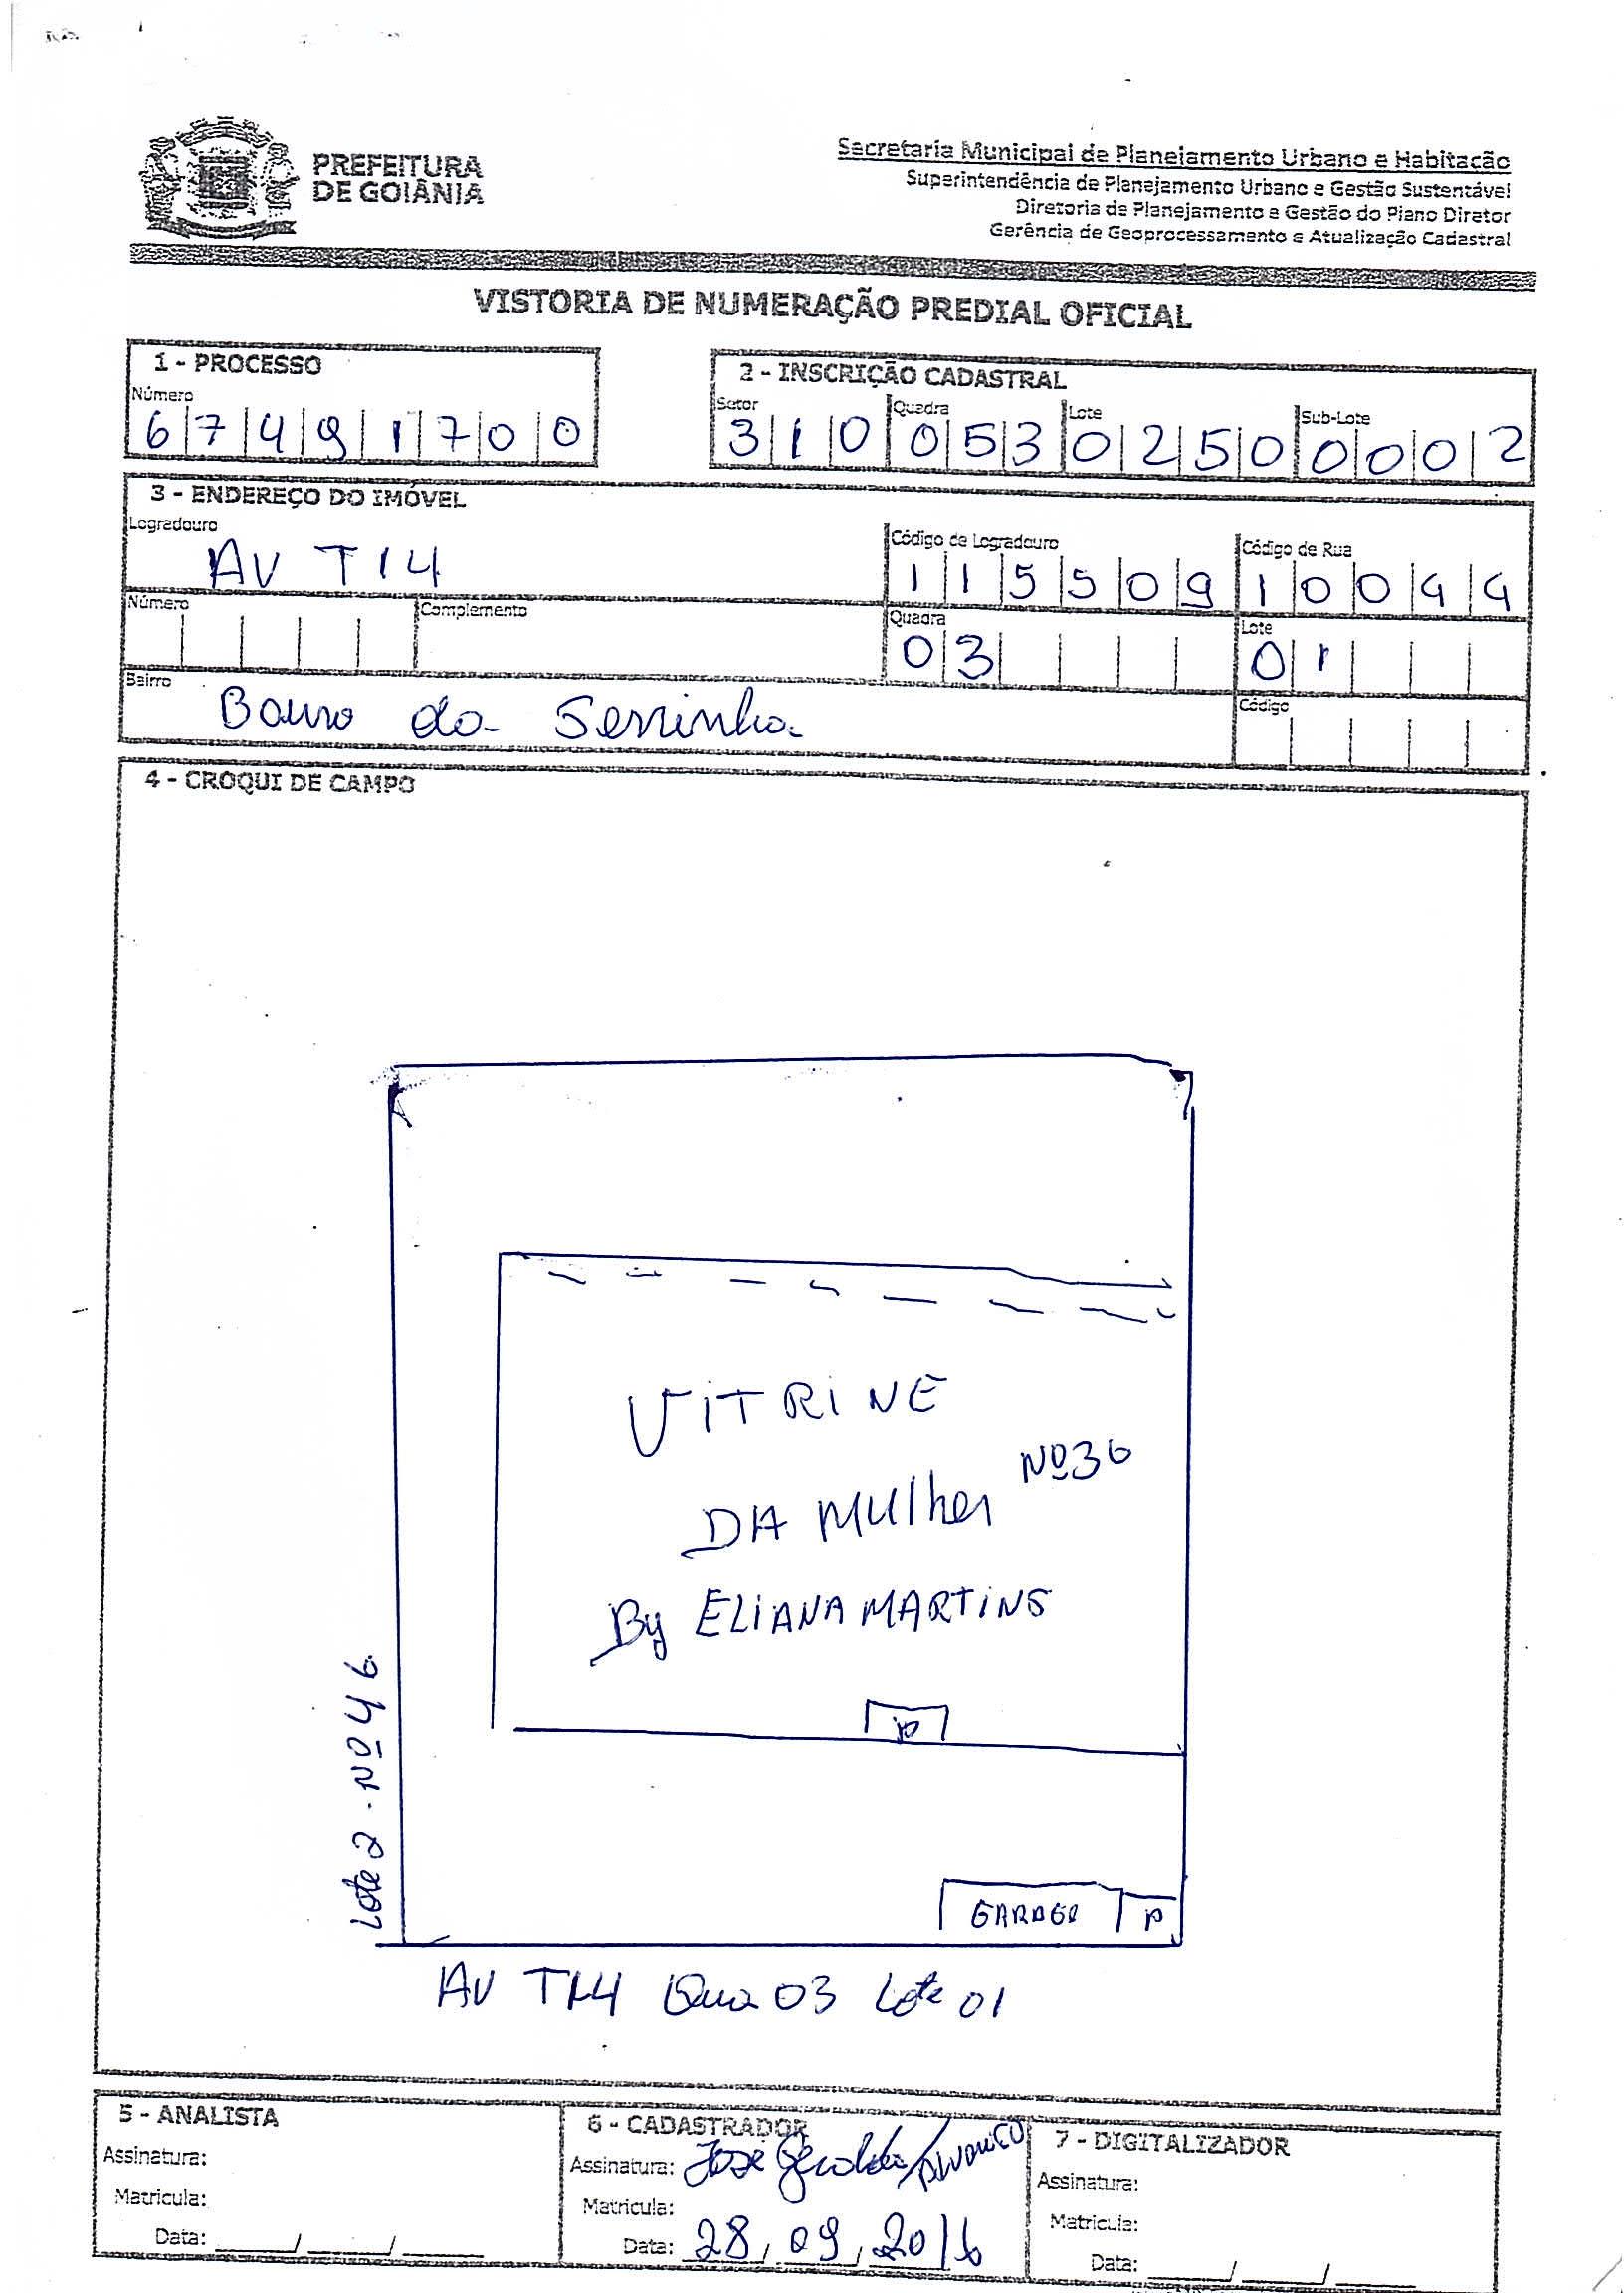 PREFEITURA
DE GOIÂNIA
Secretaria Municipal de Planejamento Urbano e Habitação
Superintendência de Planejamento Urbano e Gestão Sustentável
Diretoria de Planejamento e Gestão do Plano Diretor
Gerência de Geoprocessamento e Atualização Cadastral
VISTORIA DE NUMERAÇÃO PREDIAL OFICIAL
1 - PROCESSO
Número
67491700
2 - INSCRIÇÃO CADASTRAL
Setor Quadra Lote Sub-Lote
310 053 0250 0002
3 - ENDEREÇO DO IMÓVEL
Logradouro Código de Logradouro Código de Rua
AV T14 115509 10044
Número Complemento Quadra Lote
03 01
Bairro Código
Bairro da Serrinha
4 - CROQUI DE CAMPO
VITRINE
Nº 36
DA Mulher
By ELIANA MARTINS
P
Lote 2 - Nº 46
GARAGE P
AV T14 Qua 03 Lote 01
5 - ANALISTA
Assinatura:
Matricula:
Data: ____/____/____
6 - CADASTRADOR
Assinatura: José Geraldo
Matricula:
Data: 28/09/2016
7 - DIGITALIZADOR
Assinatura:
Matricula:
Data: ____/____/____